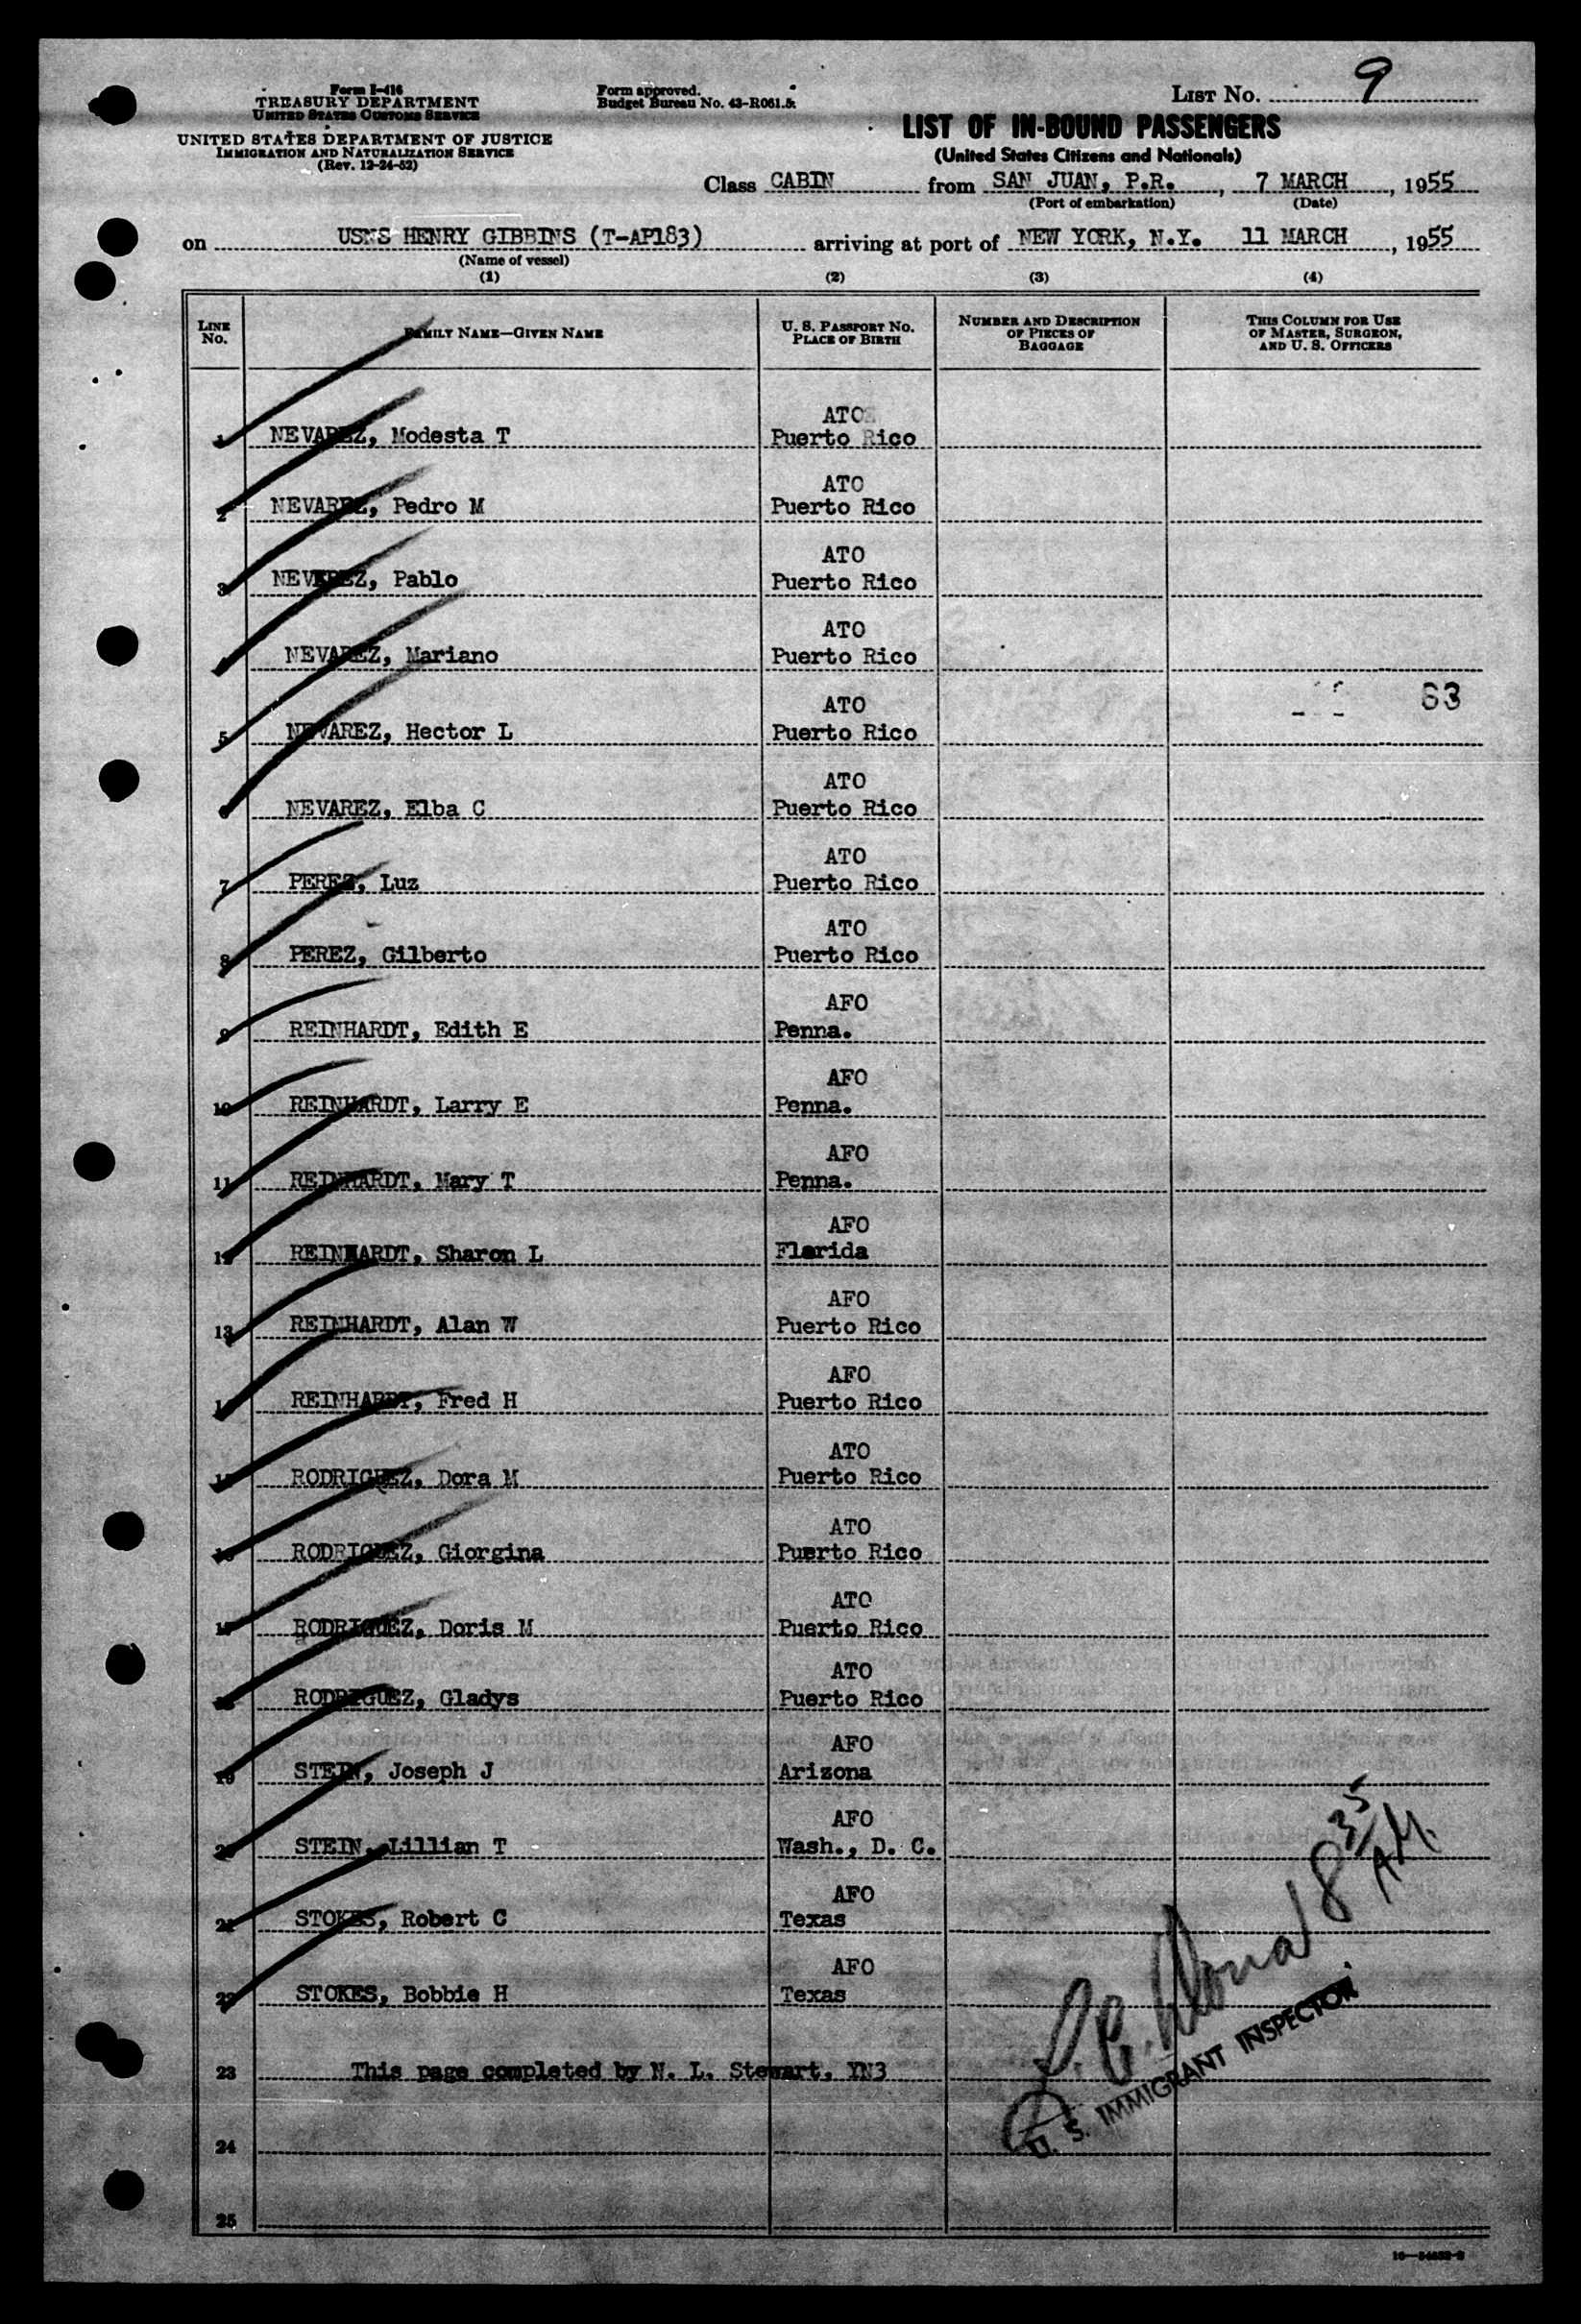 Form I-416
TREASURY DEPARTMENT
UNITED STATES CUSTOMS SERVICE
UNITED STATES DEPARTMENT OF JUSTICE
IMMIGRATION AND NATURALIZATION SERVICE
(Rev. 12-24-52)
Form approved.
Budget Bureau No. 43-R061.5.
LIST NO. 9
LIST OF IN-BOUND PASSENGERS
(United States Citizens and Nationals)
Class CABIN from SAN JUAN, P.R., 7 MARCH, 1955
(Port of embarkation) (Date)
on USNS HENRY GIBBINS (T-AP183) arriving at port of NEW YORK, N.Y. 11 MARCH, 1955
(Name of vessel)
(1) (2) (3) (4)
LINE NO. FAMILY NAME—GIVEN NAME U. S. PASSPORT NO. PLACE OF BIRTH NUMBER AND DESCRIPTION OF PIECES OF BAGGAGE THIS COLUMN FOR USE OF MASTER, SURGEON, AND U. S. OFFICERS
ATO
1 NEVAREZ, Modesta T Puerto Rico
ATO
2 NEVAREZ, Pedro M Puerto Rico
ATO
3 NEVEREZ, Pablo Puerto Rico
ATO
4 NEVAREZ, Mariano Puerto Rico
63
ATO
5 NEVAREZ, Hector L Puerto Rico
ATO
6 NEVAREZ, Elba C Puerto Rico
ATO
7 PEREZ, Luz Puerto Rico
ATO
8 PEREZ, Gilberto Puerto Rico
AFO
9 REINHARDT, Edith E Penna.
AFO
10 REINHARDT, Larry E Penna.
AFO
11 REINHARDT, Mary T Penna.
AFO
12 REINHARDT, Sharon L Florida
AFO
13 REINHARDT, Alan W Puerto Rico
AFO
14 REINHARDT, Fred H Puerto Rico
ATO
15 RODRIGUEZ, Dora M Puerto Rico
ATO
16 RODRIGUEZ, Giorgina Puerto Rico
ATO
17 RODRIGUEZ, Doris M Puerto Rico
ATO
18 RODRIGUEZ, Gladys Puerto Rico
AFO
19 STEIN, Joseph J Arizona
AFO
20 STEIN, Lillian T Wash., D. C.
AFO
21 STOKES, Robert C Texas
AFO
22 STOKES, Bobbie H Texas
8 35 AM.
U. S. IMMIGRANT INSPECTOR
23 This page completed by N. L. Stewart, YN3
24
25